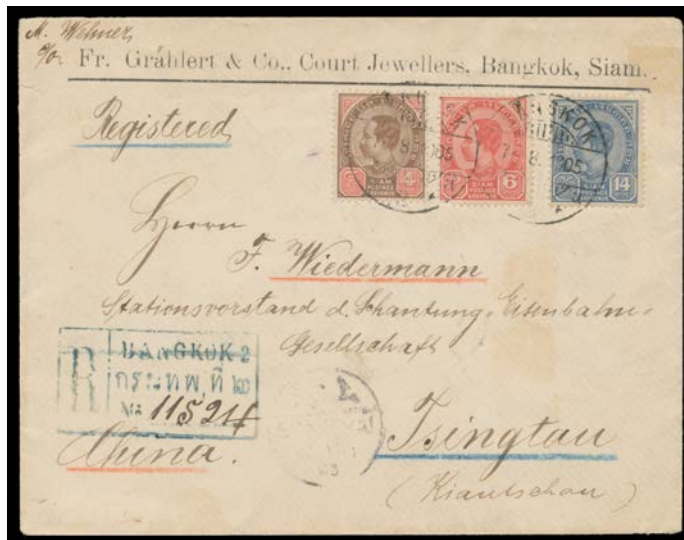 M. Wehner
c/o Fr. Grählert & Co., Court Jewellers, Bangkok, Siam.
Registered
SIAM
4
SIAM
6
SIAM
14
BANGKOK
Herrn
F. Wiedermann
Stationsvorstand d. Shantung-Eisenbahn-
Gesellschaft
R
BANGKOK 2
กรุงเทพ ที่ ๒
No 11524
Tsingtau
China.
(Kiautschou)